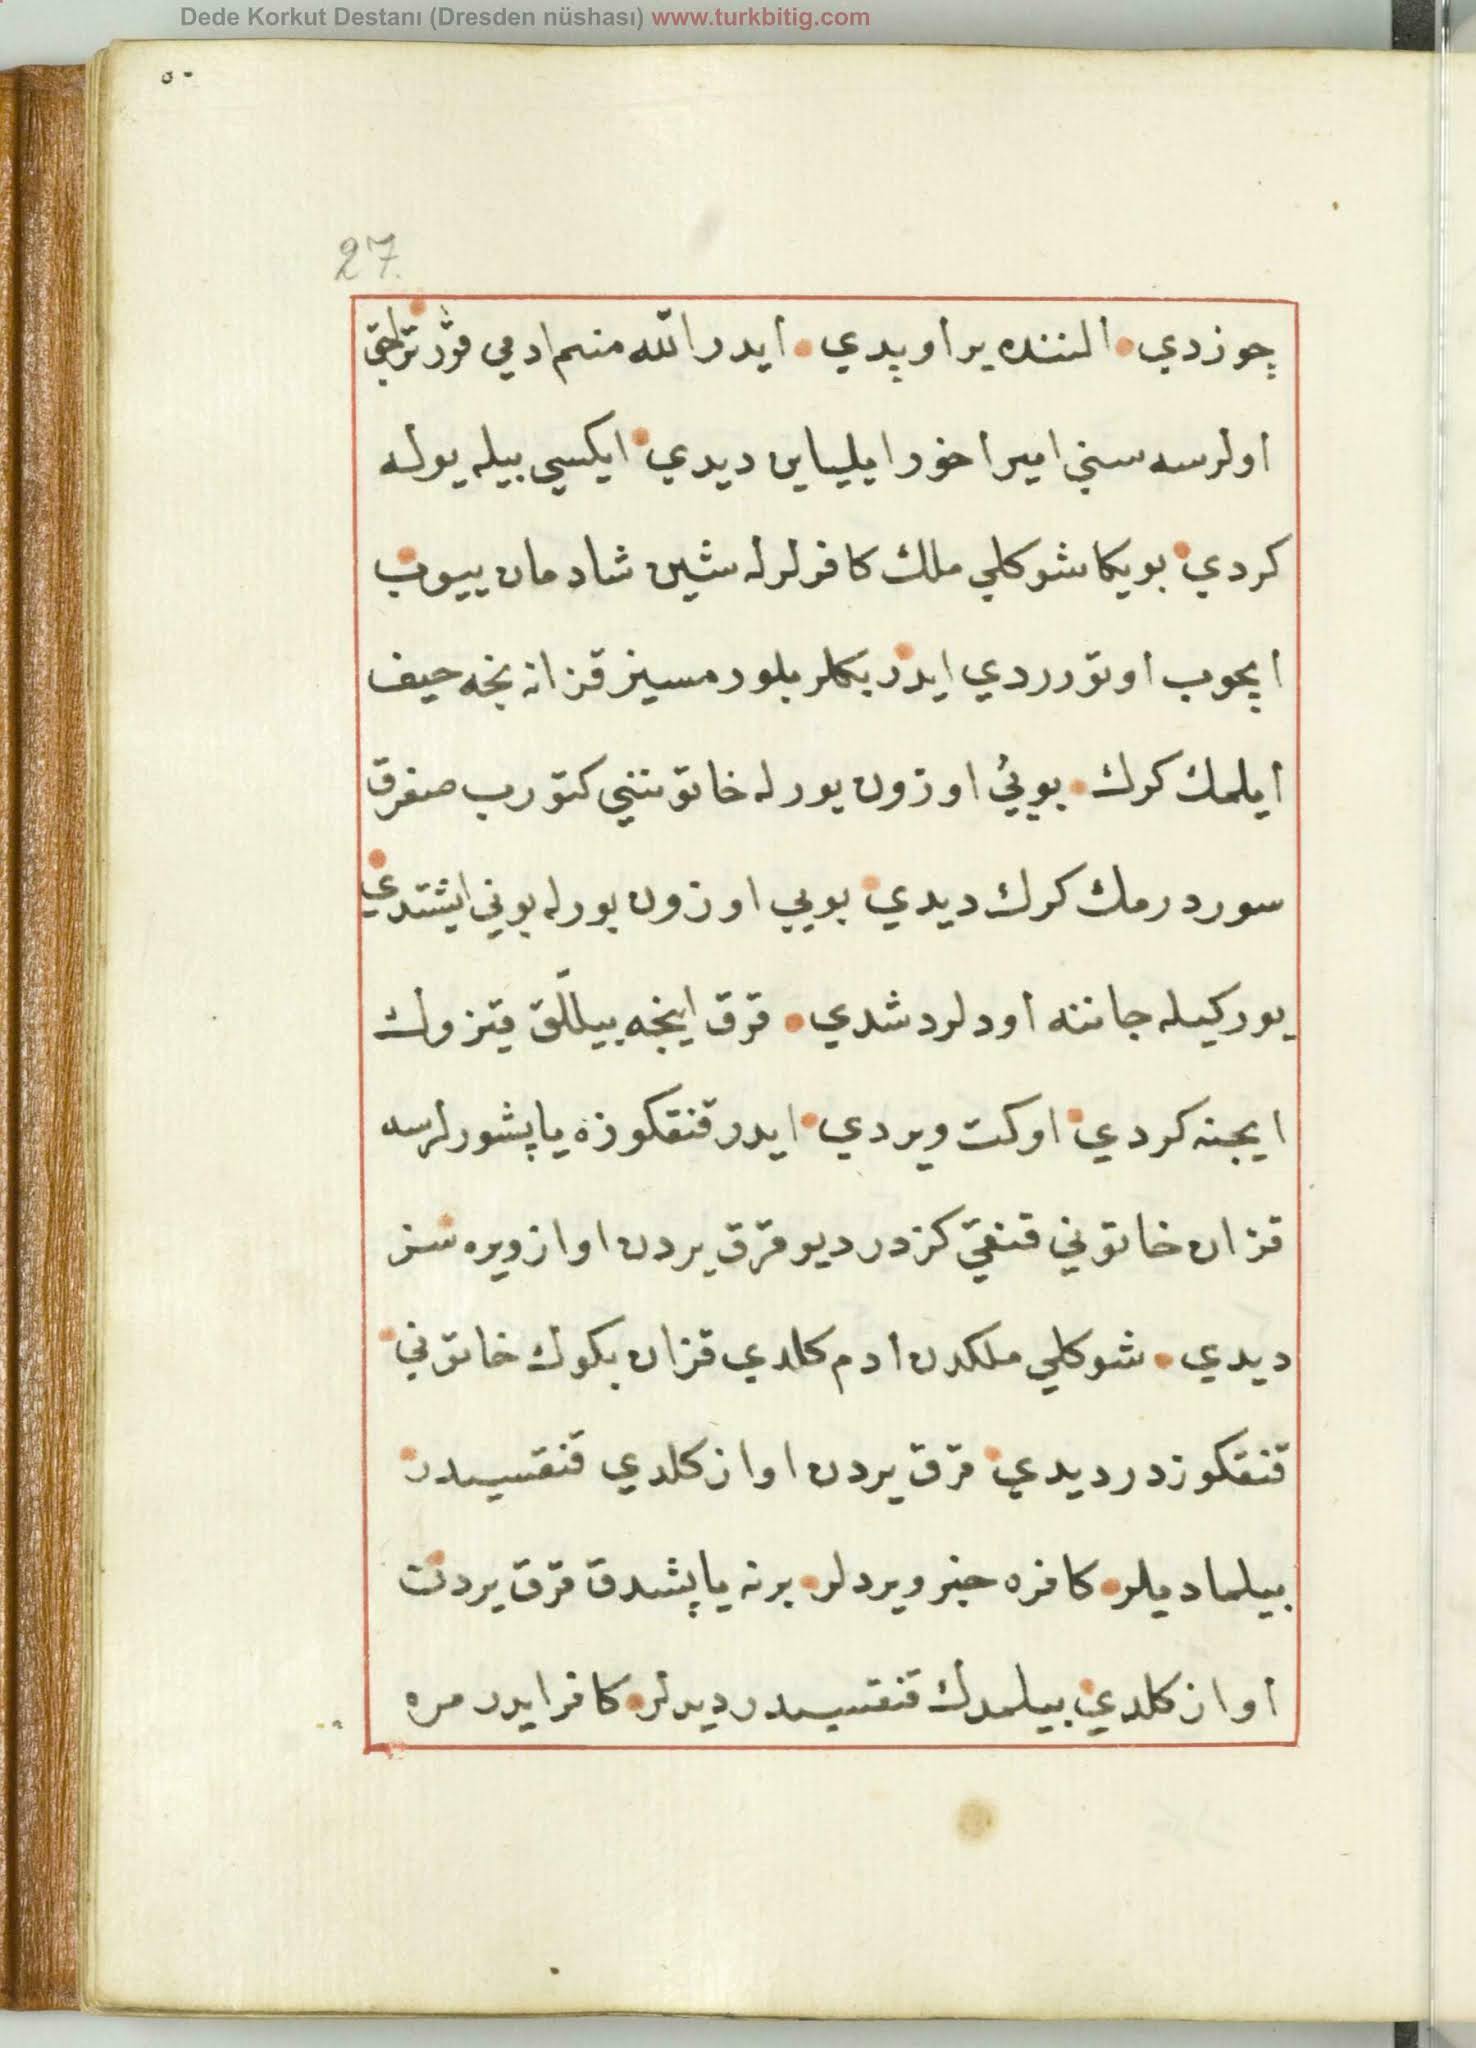 Dede Korkut Destanı (Dresden nüshası) www.turkbitig.com
٥٠
27.
چوزدي الننده ير اوپدي ايدر الله منم اومي قورتراجق
اولرسه سني امير اخور ايلياين ديدي ايكسي بيله يوله
كردي بويكا شوكلي ملك كافرلرله شين شادمان ييوب
ايچوب اوتوررdي ايدر بكلر بلورمسيز قزانه نجه حيف
ايلمك كرك بويي اوزون بورله خاتوننني كتورب صغرق
سوردرمك كرك ديدي بويي اوزون بورله بوني ايشتدي
يوركيله جاننه اودلر دشدي قرق اينجه بيللق قيزوك
ايجنه كردي اوكت ويردي ايدر قنقكوزه ياپشورلرسه
قزان خاتوني قنقي كزدر ديو قرق يردن اواز ويره سز
ديدي شوكلي ملكدن ادم كلدي قزان بكوك خاتوني
قنقكوزدر ديدي قرق يردن اواز كلدي قنقسيدر
بيلماديلر كافره خبر ويردلر برنه ياپشدق قرق يردن
اواز كلدي بيلمدك قنقسيدر ديدلر كافر ايدر مره